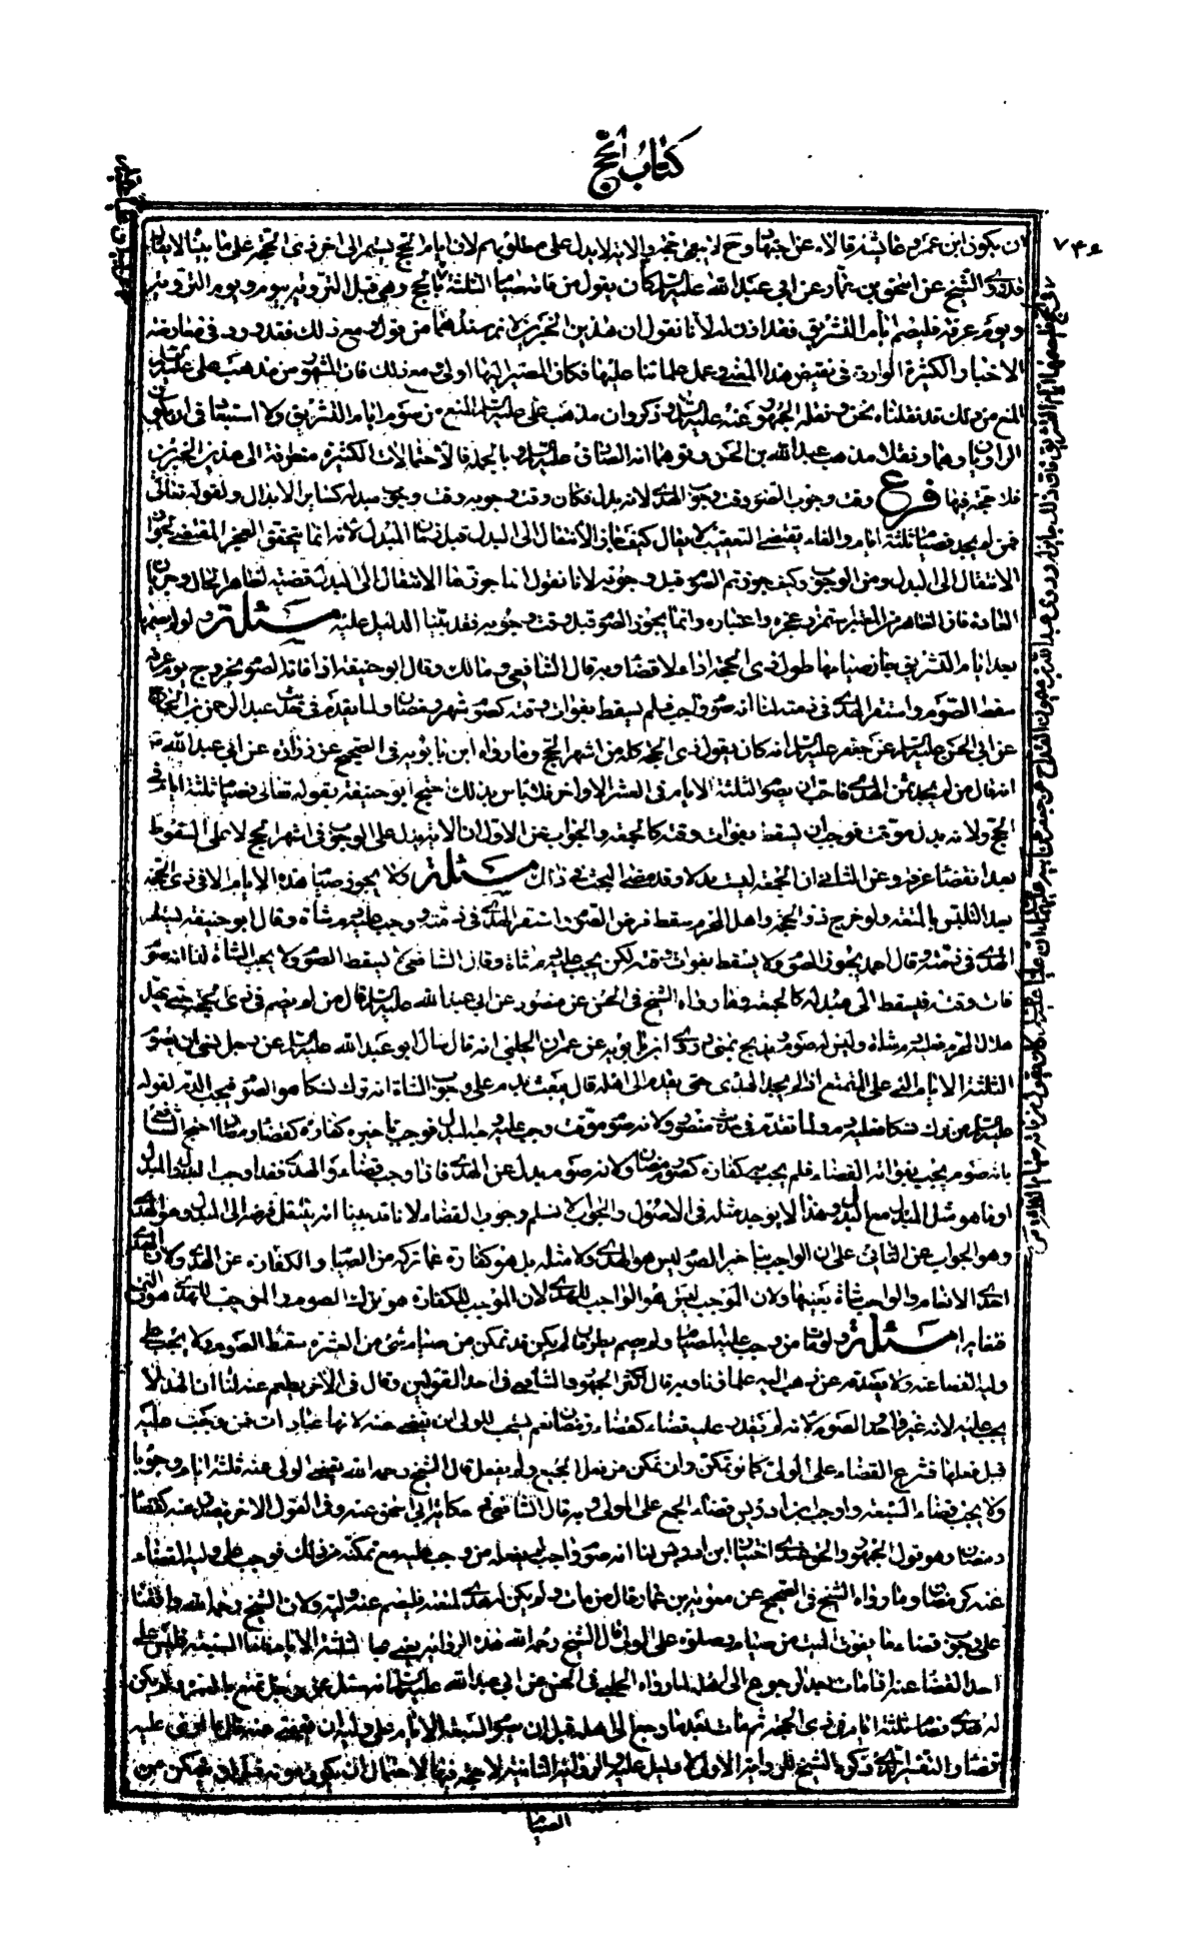 كتاب الحج
٧٤٤
ان يكون ابن عمر وعايشة قالاه عن اجتهاد وح لا يبقى حجة والاية لا يدل على مطلوبهم لان ايام الحج يستمر الى اخر ذى الحجة على ما بيناه لا يقال
قد روى الشيخ عن اسحق بن عمار عن ابى عبد الله عليه السلم كان يقول من فاته صيام الثلثة فى الحج وهى قبل التروية بيوم ويوم التروية
ويوم عرفة فليصم ايام التشريق فقد اذن له لانا نقول ان هذين الخبرين لا نمر سندهما من قول ومع ذلك فقد ورد فى معارضته
الاخبار الكثيرة الواردة فى نقيض هذا المعنى وعمل علمائنا عليها فكان المصير اليها اولى ومع ذلك فان المشهور من مذهب على عليه السلم
المنع من ذلك قد نقلناه نحن ونقله الجمهور عنه عليه السلم وذكروا ان مذهب على عليه السلم المنع من صوم ايام التشريق ولا استبعاد فى ان يكون
الراويان وهما ونقلا مذهب عبد الله بن الحسن وتوهما انه الصادق عليه السلم وبالجملة فالاحتمالات الكثيرة متطرقة الى هذين الخبرين
فلا حجة فيها فرع وقت وجوب الصوم وقت وجوب الهدى لانه بدل فكان وقت وجوبه وقت وجوب مبدله كساير الابدال ولقوله تعالى
فمن لم يجد فصيام ثلثة ايام والفاء يقتضى التعقيب لا يقال كيف جاز الانتقال الى البدل قبل زمان المبدل لانه انما يتحقق العجز المقتضى لجواز
الانتقال الى البدل زمن الوجوب وكيف جوزتم الصوم قبل وجوبه لانا نقول انما جوزنا الانتقال الى البدل قضية لظاهر الحال وجريان
العادة فان الظاهر من المعسر استمرار عجزه واعتباره وانما يجوز الصوم قبل وقت وجوبه فقد بينا الدليل عليه مسئلة ولو لم يصمها
بعد ايام التشريق جاز صيامها طول ذى الحجة اداء لا قضاء وبه قال الشافعى ومالك وقال ابو حنيفة اذا فاته الصوم بخروج يوم عرفة
سقط الصوم واستقر الهدى فى ذمته لنا انه صوم واجب فلم يسقط بفوات وقته كصوم شهر رمضان ولما تقدم فى حديث عبد الرحمن بن الحجاج
عن ابى الحسن عليه السلم عن جعفر عليه السلم انه كان يقول ذى الحجة كله من اشهر الحج وما رواه ابن بابويه فى الصحيح عن زرارة عن ابى عبد الله ع
انه قال من لم يجد ثمن الهدى فاحب ان يصوم الثلثة الايام فى العشر الاواخر فلا باس بذلك احتج ابو حنيفة بقوله تعالى فصيام ثلثة ايام فى
الحج ولانه بدل موقت فوجب ان يسقط بفوات وقته كالجمعة والجواب عن الاول ان الاية تدل على الوجوب فى اشهر الحج لا على السقوط
بعد انقضاء عرفة وعن الثانى ان الجمعة ليست بدلا وقد مضى البحث فى ذلك مسئلة ولا يجوز صيام هذه الايام الا فى ذى الحجة
بعد التلبس بالمتعة ولو خرج ذو الحجة واهل المحرم سقط فرض الصوم واستقر الهدى فى ذمته ووجب عليه دم شاة وقال ابو حنيفة يستقر
الهدى فى ذمته وقال احمد يجوز الصوم ولا يسقط بفوات وقته لكن يجب عليه دم شاة وقال الشافعى لا يسقط الصوم ولا يجب الشاة لنا انه صوم
فات وقته فيسقط الى مبدله كالجمعة وما رواه الشيخ فى الحسن عن منصور عن ابى عبد الله عليه السلم قال من لم يصم فى ذى الحجة حتى يهل
هلال المحرم فعليه دم شاة وليس له صوم ويذبح بمنى وروى ابن بابويه عن عمران الحلبى انه قال سال ابو عبد الله عليه السلم عن رجل نسى ان يصوم
الثلثة الايام التى على المتمتع اذا لم يجد الهدى حتى يقدم الى اهله قال يبعث بدم وعلى وجوب الشاة انه ترك نسكا هو الصوم فيجب الدم لقوله
عليه السلم من ترك نسكا فعليه دم ولما تقدم فى حديث منصور ولانه صوم موقت وجب عليه مبدل فوجب بتاخيره كفارة كقضاء رمضان احتج الشافعى
بانه صوم يجب بفواته القضاء فلم يجب به كفارة كصوم رمضان ولانه صوم يبدل عن الهدى فاذا وجب قضاء والهدى فقد اوجب البدل والمبدل
او ما هو مثل المبدل مع البدل وهذا لا يوجد مثله فى الاصول والجواب لا نسلم وجوب القضاء لانا قد بينا انه ينتقل فرضه الى المبدل وهو الهدى
وهو الجواب عن الثانى على ان الواجب بتاخير الصوم ليس هو الهدى ولا مثله بل هو كفارة عما تركه من الصيام والكفارة عن الهدى ولان الهدى
احدى الانعام والواجب شاة بعينها ولان الموجب ليس هو الواجب للهدى لان الموجب للكفارة هو ترك الصوم والموجب للهدى هو التمتع
فتغايرا مسئلة ولو مات من وجب عليه الصيام ولم يصم بطر فان لم يكن قد تمكن من صيام شئ من العشرة سقط الصوم ولا يجب على
وليه القضاء عنه ولا يصدقه عنه ذهب اليه علماؤنا وبه قال اكثر الجمهور والشافعى فى احد القولين وقال فى الاخر يطعم عنه لنا ان الهدى لا
يجب عليه لانه غير واجد الصوم لانه لم يقدر عليه قضاء كقضاء رمضان نعم يستحب للولى ان يقضى عنه لانها عبادات فمن وجبت عليه
قبل فعلها فشرع القضاء على الولى كما لو تمكن وان تمكن من فعل الجميع ولم يفعل قال الشيخ رحمه الله يقضى الولى عنه ثلثة ايام وجوبا
ولا يجب قضاء السبعة واوجب ابن ادريس قضاء الجميع على الولى وبه قال الشافعى فى حكاية ابى اسحق عنه وفى القول الاخر يصدق عنه كقضاء
رمضان وهو قول الجمهور والحق عندى اختيار ابن ادريس لنا انه صوم واجب لم يفعله من وجب عليه مع تمكنه من ذلك فوجب على وليه القضاء
عنه كرمضان وما رواه الشيخ فى الصحيح عن معوية بن عمار قال من مات ولم يكن له هدى لمتعته فليصم عنه وليه ولان الشيخ رحمه الله وافقنا
على وجوب قضاء ما يفوت الميت من صيام وصلوة على الولى قال الشيخ رحمه الله هذه الرواية يعنى صيام الثلثة الايام فاما السبعة فليس على
احد القضاء عنه اذا مات بعد الرجوع الى اهله لما رواه الحلبى فى الحسن عن ابى عبد الله عليه السلم انه سئل عن رجل تمتع بالعمرة ولم يكن
له هدى فصام ثلثة ايام فى ذى الحجة ثم مات بعد ما رجع الى اهله قبل ان يصوم السبعة الايام على وليه ان يقضى عنه قال ما ارى عليه
قضاء والتفسير الذى ذكره الشيخ للرواية الاولى لا دليل عليه والرواية الثانية لا حجة فيها لاحتمال ان يكون موته قبل ان يتمكن من
الصيام